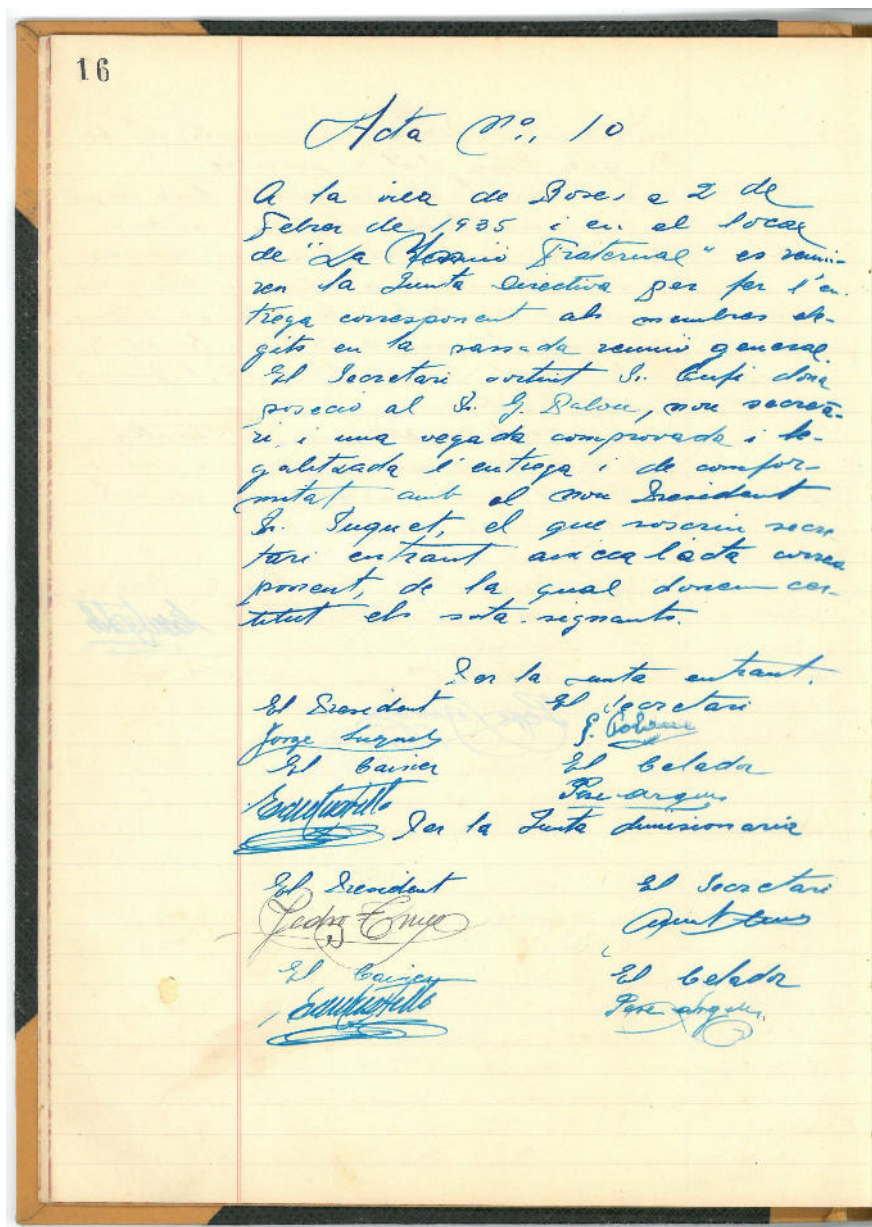 16
Acta Nº., 10
A la vila de Roses a 2 de
Febrer de 1935 i en el local
de "La Fraternal" es reuni-
ren la Junta Directiva per fer l'en-
trega corresponent als membres ele-
gits en la passada reunió general.
El Secretari sortint Sr. Cufi dona
posecio al Sr. G. Dalou, nou secreta-
ri, i una vegada comprovada i le-
galitzada l'entrega i de confor-
mitat amb el nou President
Sr. Suquet, el que soscriu secre
tari entrant aixeca l'acta corres
ponent, de la qual donem cer-
titut els sota-signants.
Per la junta entrant.
El President El Secretari
Jorge Suquet G.
El Caixer El Celador
Pere Argeus
Per la Junta dimisionaria
El President El Secretari
Pedro
El Caixer El Celador
Pere Argeus